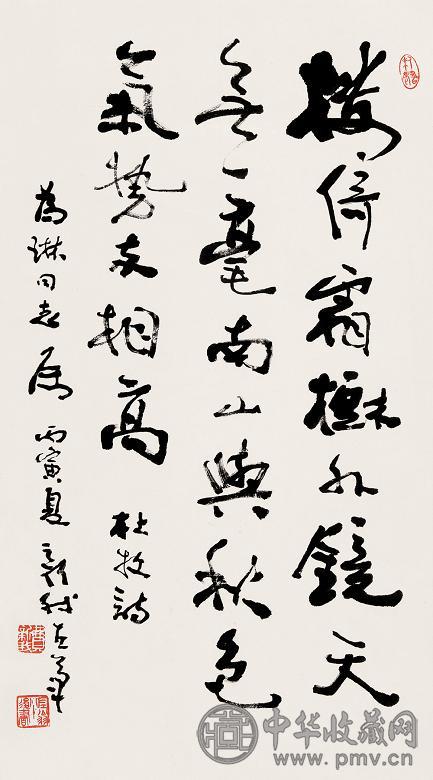 樓倚霜樹外鏡天
無一毫南山與秋色
氣勢兩相高 杜牧詩
為琳同志属 丙寅夏 新我左筆
中华收藏网
www.pmv.cn